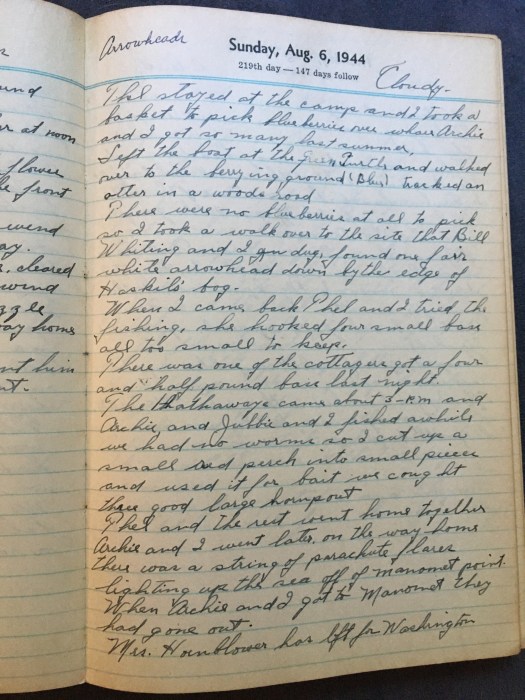 und
er at noon
flower
e front
wend
ay.
s. cleared
wind
zzle
way home
nt him
nt.
Arrowheads
Sunday, Aug. 6, 1944
219th day—147 days follow
Cloudy.
Phel stayed at the camp and I took a
basket to pick blueberries over where Archie
and I got so many last summer,
Left the boat at the and walked
over to the berrying ground (Blue) tracked an
otter in a woods road
There were no blueberries at all to pick
so I took a walk over to the site that Bill
Whiting and I you dug, found one fair
white arrowhead down by the edge of
Haskils bog.
When I came back Phel and I tried the
fishing, she hooked four small bass
all too small to keep.
There was one of the cottagers got a four
and half pound bass last night.
The Hathaways came about 3-P.M and
Archie and Jubbie and I fished awhile
we had no worms so I cut up a
small red perch into small pieces
and used it for bait we caught
three good large hornpout
Phel and the rest went home together
Archie and I went later, on the way home
there was a string of parachute flares
lighting up the sea off of manomet point.
When Archie and I got to Manomet they
had gone out.
Mrs. Hornblower has left for Washington